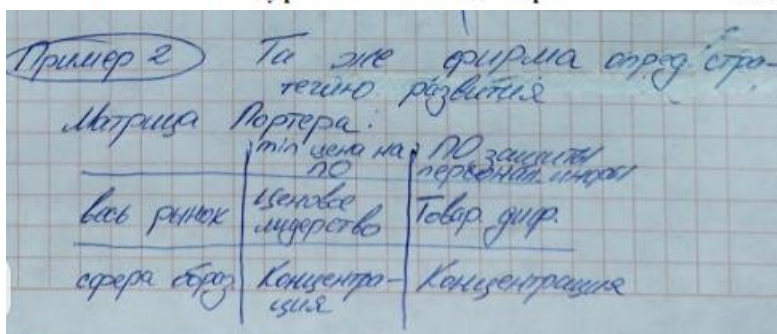 Пример 2 Та же фирма опред. стра-
тегию развития
Матрица Портера:
min цена на ПО защиты
ПО персонал. инфы
весь рынок Ценовое лидерство Товар. диф.
сфера образ Концентра- Концентрация
ция